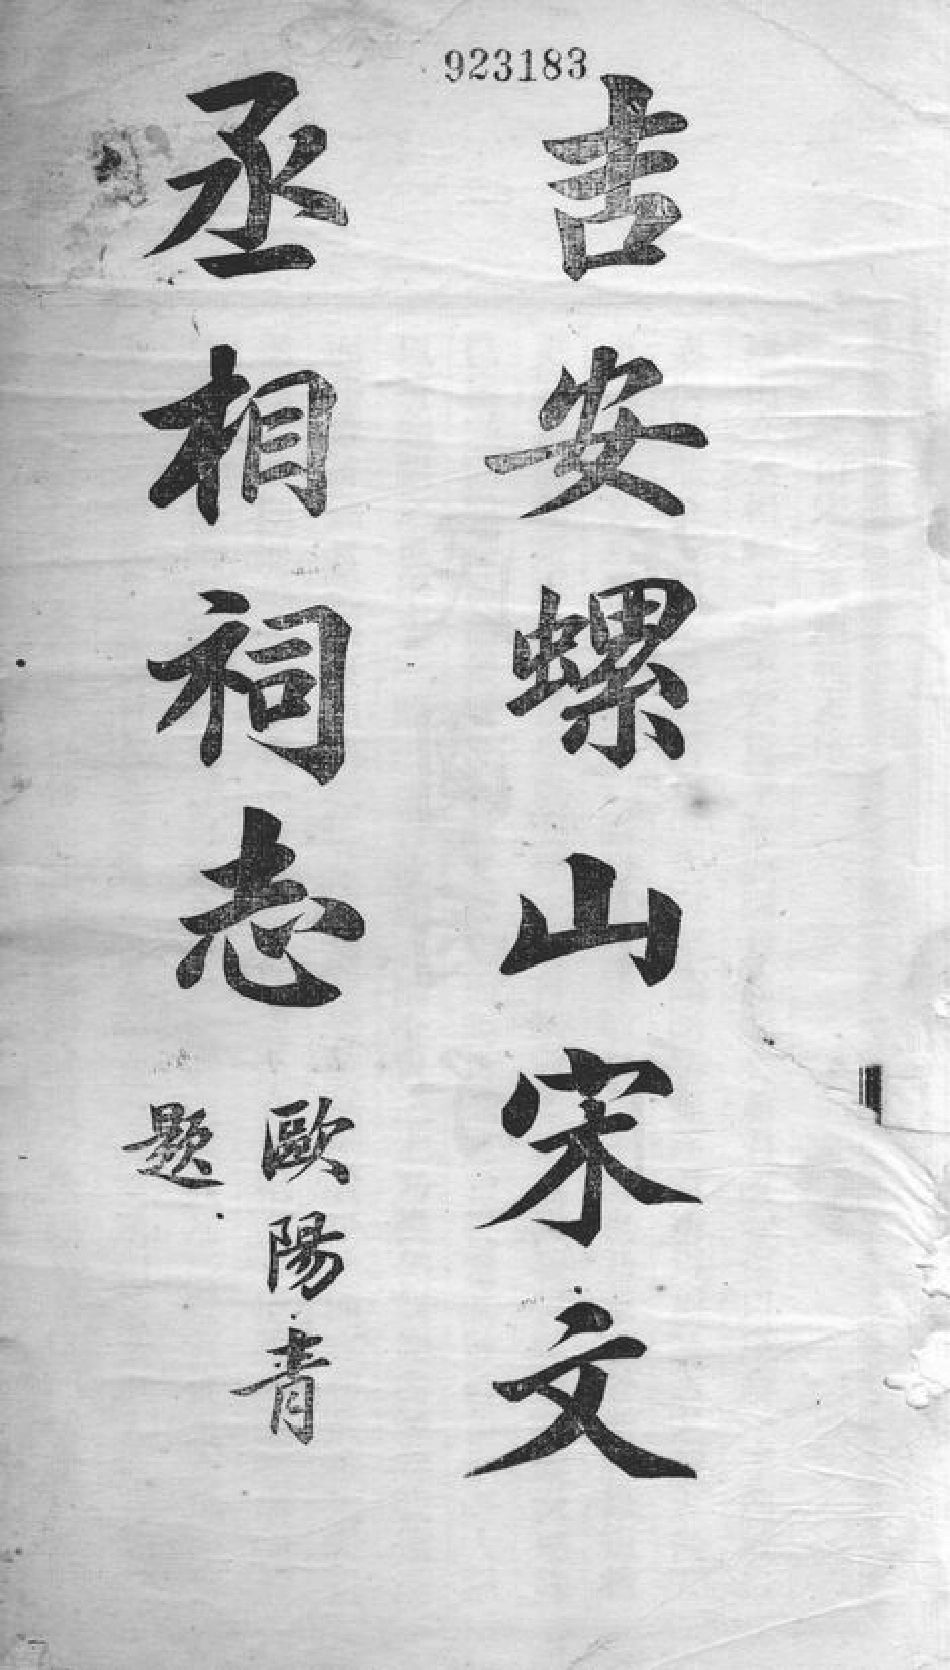 923183
吉安螺山宋文
丞相祠志
歐陽青
題